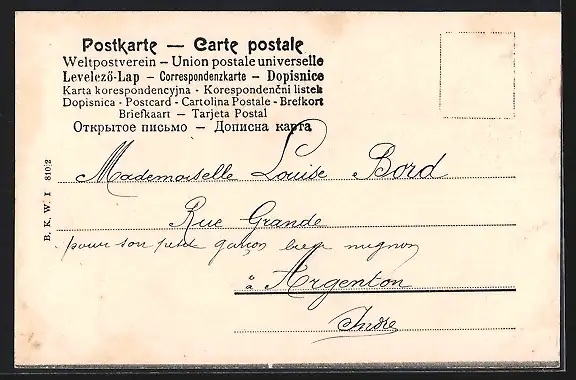 Postkarte — Carte postale
Weltpostverein – Union postale universelle
Levelező-Lap – Correspondenzkarte – Dopisnice
Karta korespondencyjna - Korespondenční listek
Dopisnica - Postcard - Cartolina Postale - Brefkort
Briefkaart — Tarjeta Postal
Открытое письмо — Дописна карта
B. K. W. I 810/2
Mademoiselle Louise Bord
Rue Grande
pour son petit garçon bien mignon
à Argenton
Indre